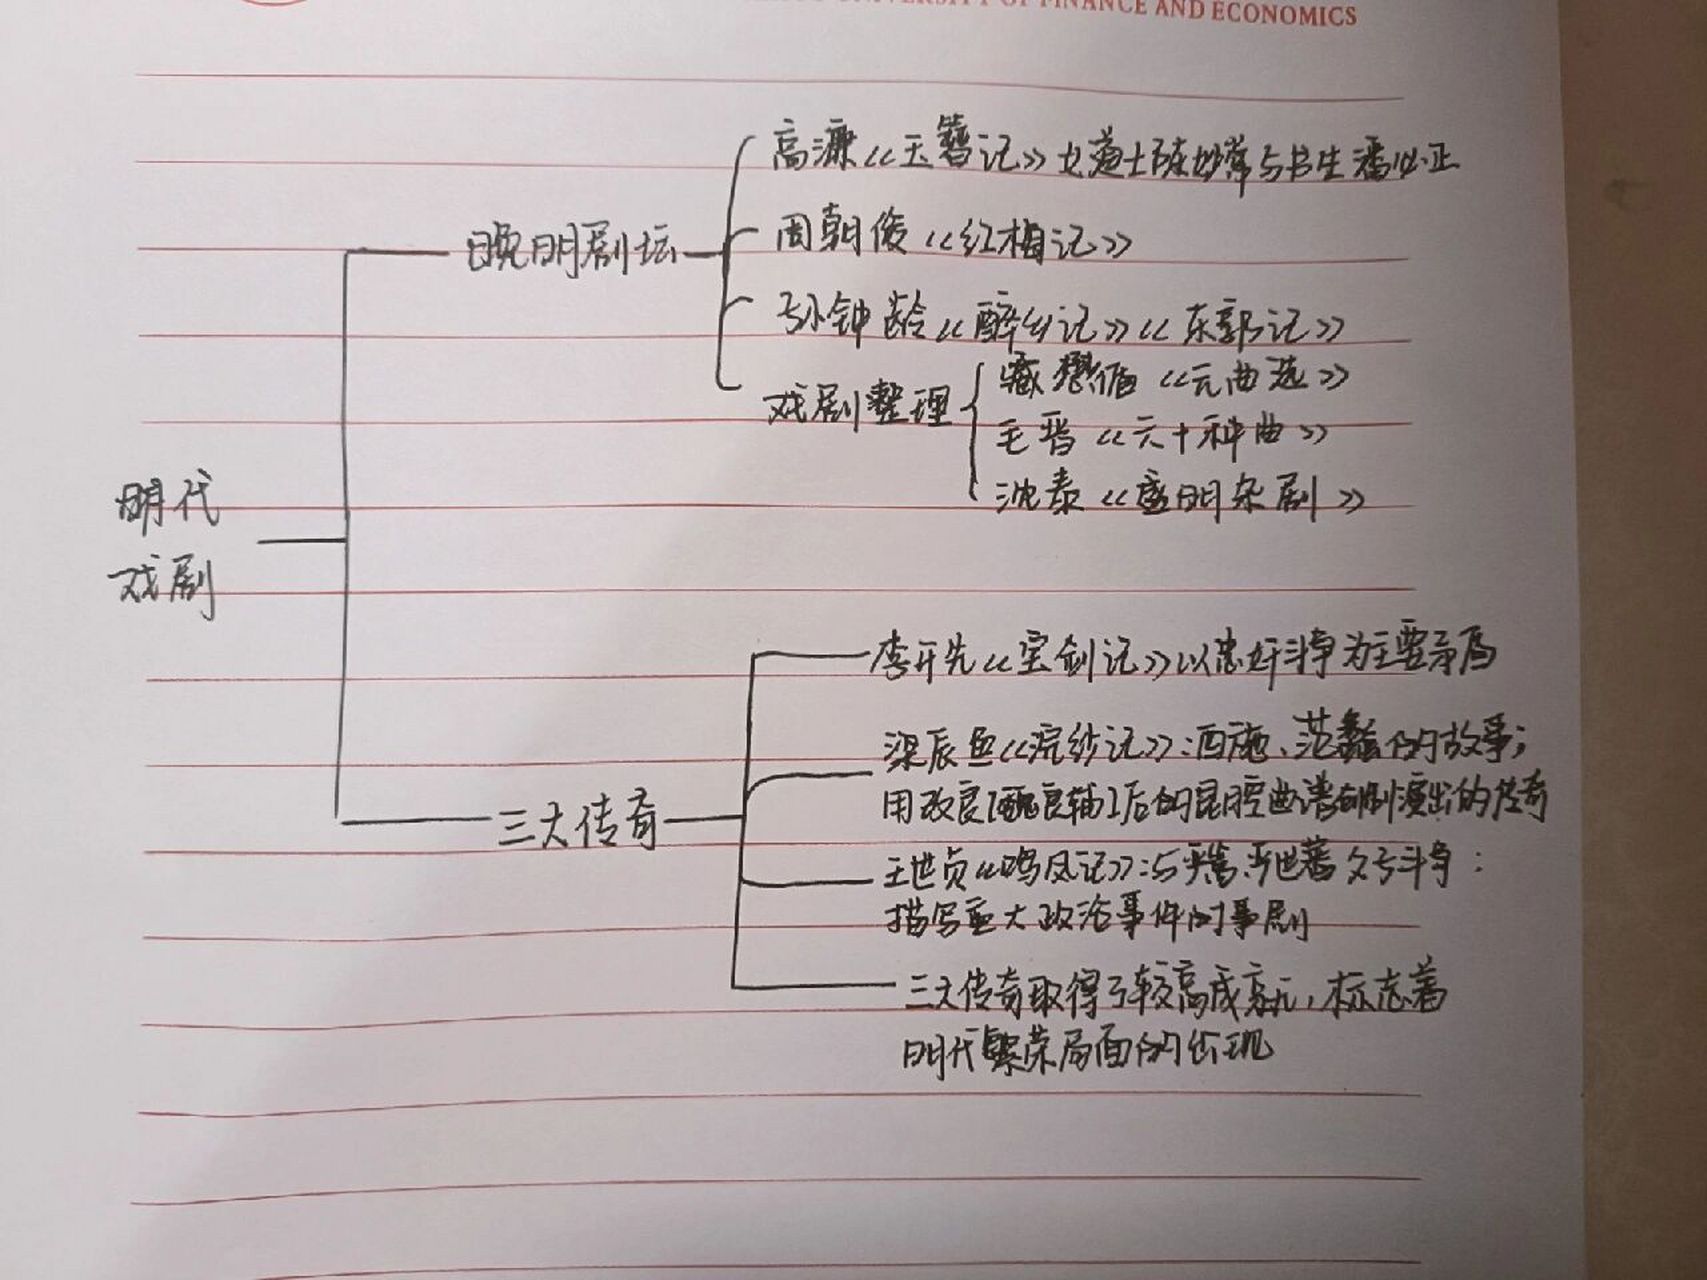 UNIVERSITY OF FINANCE AND ECONOMICS
高濂《玉簪记》女道士陈妙常与书生潘必正
晚明剧坛
周朝俊《红梅记》
孙钟龄《醉乡记》《东郭记》
戏剧整理
臧懋循《元曲选》
毛晋《六十种曲》
沈泰《盛明杂剧》
明代
戏剧
李开先《宝剑记》以忠奸斗争为主要矛盾
梁辰鱼《浣纱记》:西施、范蠡的故事;
用改良[魏良辅]后的昆腔曲谱创制演出的传奇
三大传奇
王世贞《鸣凤记》:与严嵩、严世蕃父子斗争:
描写重大政治事件时事剧
三大传奇取得了较高成就,标志着
明代繁荣局面的出现